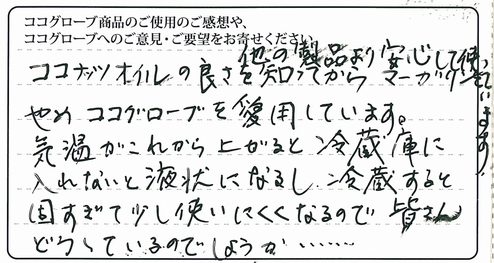 ココグローブ商品のご使用のご感想や、
ココグローブへのご意見・ご要望をお寄せください。
他の製品より安心して使っています。
ココナッツオイルの良さを知ってからマーガリンを
やめココグローブを愛用しています。
気温がこれから上がると冷蔵庫に
入れないと液状になるし、冷蔵すると
固すぎて少し使いにくくなるので皆さん
どうしているのでしょうか……